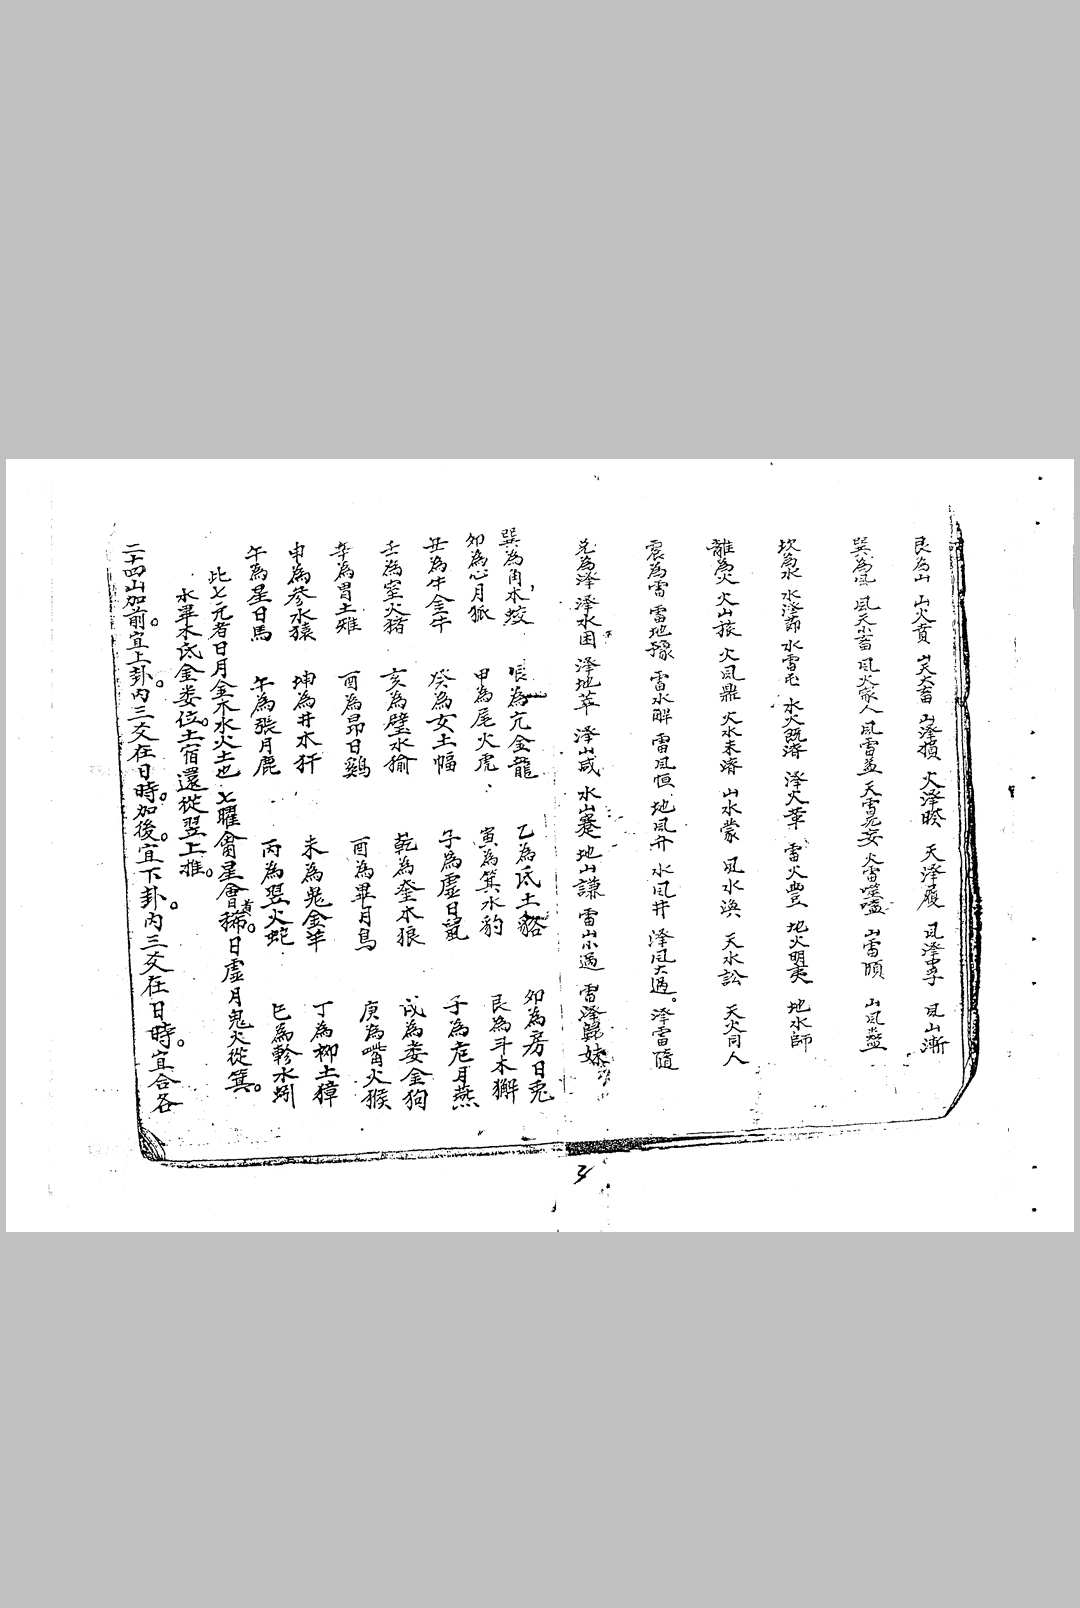 艮為山 山火賁 山天大畜 山澤損 火澤睽 天澤履 風澤中孚 風山漸
巽為風 風天小畜 風火家人 風雷益 天雷旡妄 火雷噬嗑 山雷頤 山風蠱
坎為水 水澤節 水雷屯 水火既濟 澤火革 雷火豐 地火明夷 地水師
離為火 火山旅 火風鼎 火水未濟 山水蒙 風水渙 天水訟 天火同人
震為雷 雷地豫 雷水解 雷風恒 地風升 水風井 澤風大過。澤雷隨
兌為澤 澤水困 澤地萃 澤山咸 水山蹇 地山謙 雷山小過 雷澤歸妹
巽為角木蛟 辰為亢金龍 乙為氐土貉 卯為房日兎
卯為心月狐 甲為尾火虎 寅為箕水豹 艮為斗木獬
丑為牛金牛 癸為女土幅 子為虛日鼠 子為危月燕
壬為室火豬 亥為壁水㺄 乾為奎木狼 戌為婁金狗
辛為胃土雉 酉為昴日鷄 酉為畢月烏 庚為嘴火猴
申為參水猿 坤為井木犴 未為鬼金羊 丁為柳土獐
午為星日馬 午為張月鹿 丙為翌火蛇 巳為軫水蚓
此七元者日月金木水火土也 七曜禽星會稀真。日虛月鬼火從箕。
水畢木氐金娄位。土宿還從翌上推。
二十四山加前。宜上卦。内三爻在日時。加後。宜下卦。内三爻在日時。宜合各
3